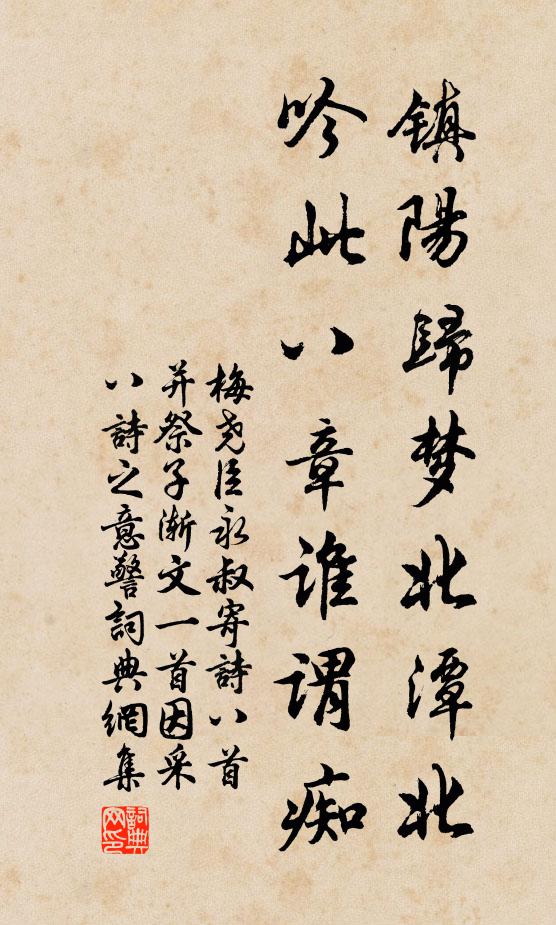 镇陽歸梦北潭北
吟此八章谁谓痴
梅尧臣永叔寄詩八首
并祭子渐文一首因采
八詩之意警詞典網集
詞典网印